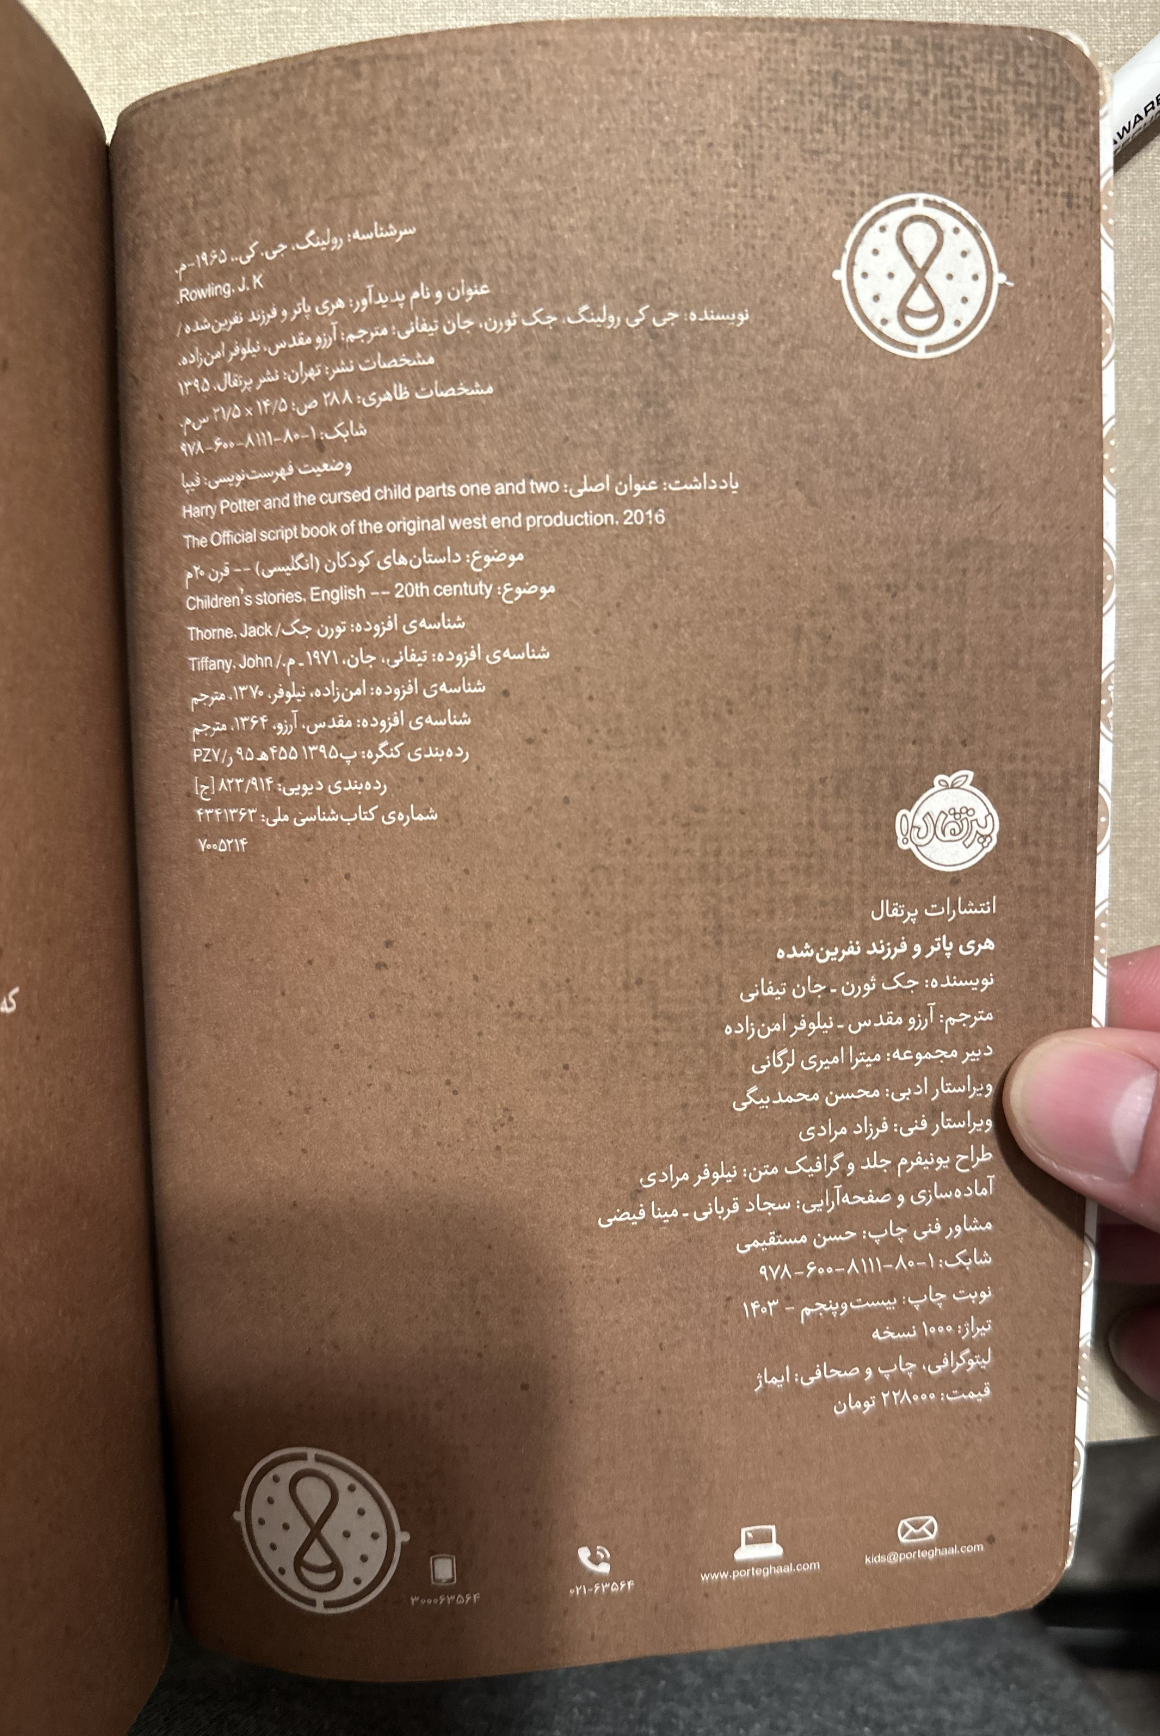 سرشناسه: رولینگ، جی. کی.، ۱۹۶۵-م.
Rowling, J. K.
عنوان و نام پدیدآور: هری پاتر و فرزند نفرین‌شده/
نویسنده: جی کی رولینگ، جک ثورن، جان تیفانی؛ مترجم: آرزو مقدس، نیلوفر امن‌زاده.
مشخصات نشر: تهران: نشر پرتقال، ۱۳۹۵
مشخصات ظاهری: ۲۸۸ ص؛ ۱۴/۵ × ۲۱/۵ س‌م.
شابک: ۱-۸۰-۸۱۱۱-۶۰۰-۹۷۸
وضعیت فهرست‌نویسی: فیپا
یادداشت: عنوان اصلی: Harry Potter and the cursed child parts one and two
The Official script book of the original west end production, 2016
موضوع: داستان‌های کودکان (انگلیسی) -- قرن ۲۰م
موضوع: Children's stories, English -- 20th centuty
شناسه‌ی افزوده: تورن جک/ Thorne, Jack
شناسه‌ی افزوده: تیفانی، جان، ۱۹۷۱ـ م./ Tiffany, John
شناسه‌ی افزوده: امن‌زاده، نیلوفر، ۱۳۷۰، مترجم
شناسه‌ی افزوده: مقدس، آرزو، ۱۳۶۴، مترجم
رده‌بندی کنگره: پ۱۳۹۵ ۴۵۵هـ ۹۵ر/PZ۷
رده‌بندی دیویی: ۸۲۳/۹۱۴ [ج]
شماره‌ی کتاب‌شناسی ملی: ۴۳۴۱۳۶۳
۷۰۰۵۲۱۴
پرتقال!
انتشارات پرتقال
هری پاتر و فرزند نفرین‌شده
نویسنده: جک ثورن ـ جان تیفانی
مترجم: آرزو مقدس ـ نیلوفر امن‌زاده
دبیر مجموعه: میترا امیری لرگانی
ویراستار ادبی: محسن محمدبیگی
ویراستار فنی: فرزاد مرادی
طراح یونیفرم جلد و گرافیک متن: نیلوفر مرادی
آماده‌سازی و صفحه‌آرایی: سجاد قربانی ـ مینا فیضی
مشاور فنی چاپ: حسن مستقیمی
شابک: ۱-۸۰-۸۱۱۱-۶۰۰-۹۷۸
نوبت چاپ: بیست‌وپنجم - ۱۴۰۳
تیراژ: ۱۰۰۰ نسخه
لیتوگرافی، چاپ و صحافی: ایماژ
قیمت: ۲۲۸۰۰۰ تومان
kids@porteghaal.com
www.porteghaal.com
۰۲۱-۶۳۵۶۴
۳۰۰۰۶۳۵۶۴
که